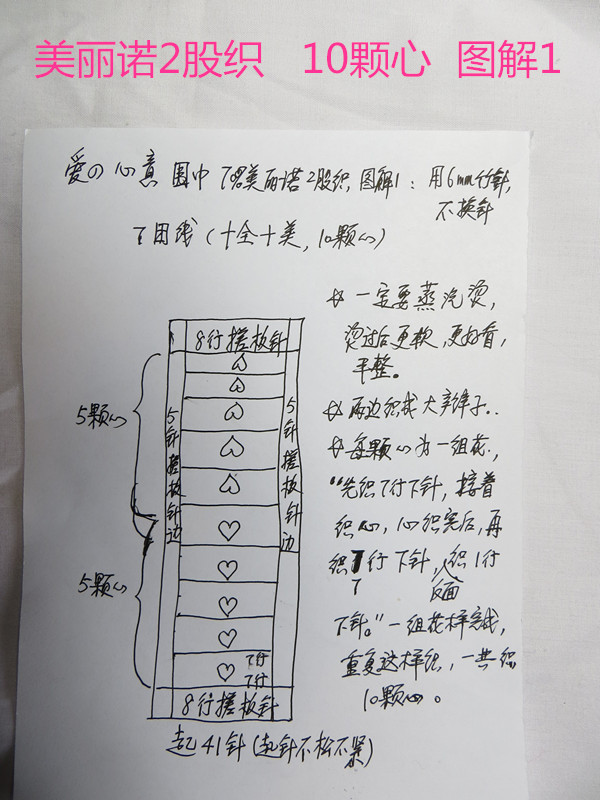 美丽诺2股织 10颗心 图解1
爱の心意 围巾 7团美丽诺2股织,图解1:用6mm竹针,
不换针
7团线(十全十美,10颗心)
8行搓板针
5颗心
5针搓板针边
5针搓板针边
5颗心
7行
7行
8行搓板针
起41针(起针不松不紧)
☆ 一定要蒸汽烫,
烫过后更软,更好看,
平整。
☆ 两边织成大辫子..
☆ 每颗心为一组花,
"先织7行下针,接着
织心,心织完后,再
织7行下针,织1行
7 反面
下针。"一组花样完成,
重复这样织,一共织
10颗心。